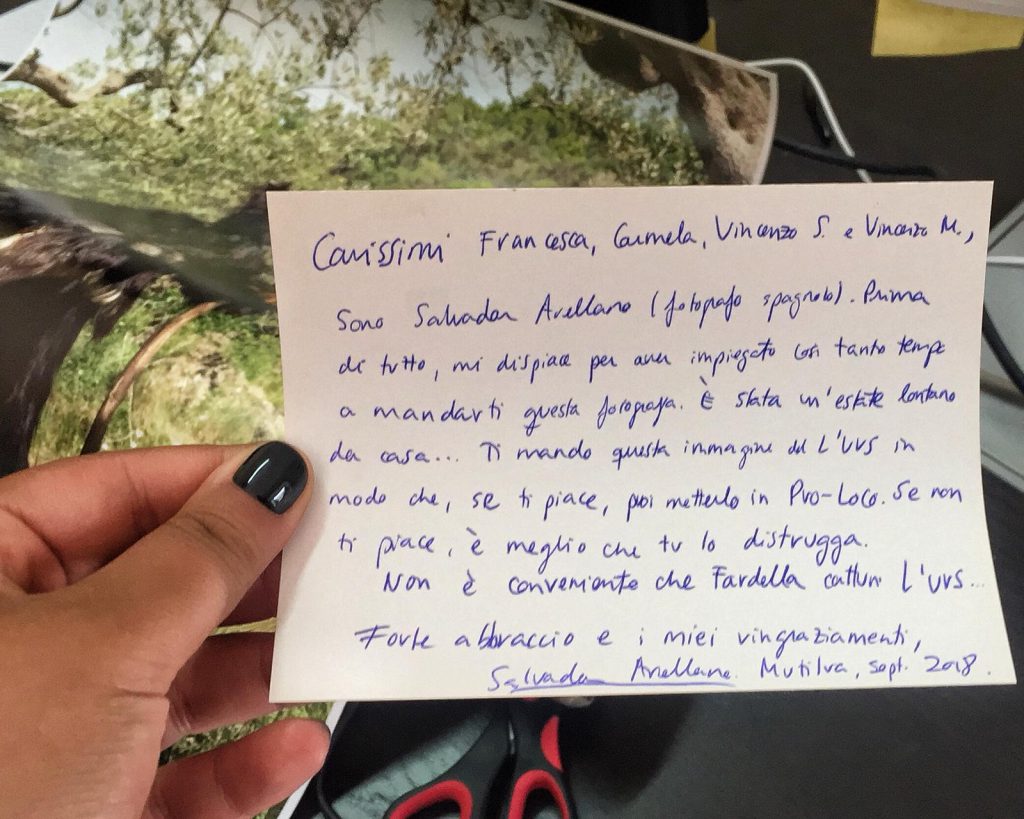 Carissimi Francesca, Carmela, Vincenzo S. e Vincenzo M.,
Sono Salvador Arellano (fotografo spagnolo). Prima
di tutto, mi dispiace per aver impiegato così tanto tempo
a mandarti questa fotografia. È stata un'estate lontano
da casa... Ti mando questa immagine del L'UVS in
modo che, se ti piace, puoi metterlo in Pro-Loco. Se non
ti piace, è meglio che tu lo distrugga.
Non è conveniente che Fardella catturi L'UVS...
Forte abbraccio e i miei ringraziamenti,
Salvador Arellano. Mutilva, sept. 2018.